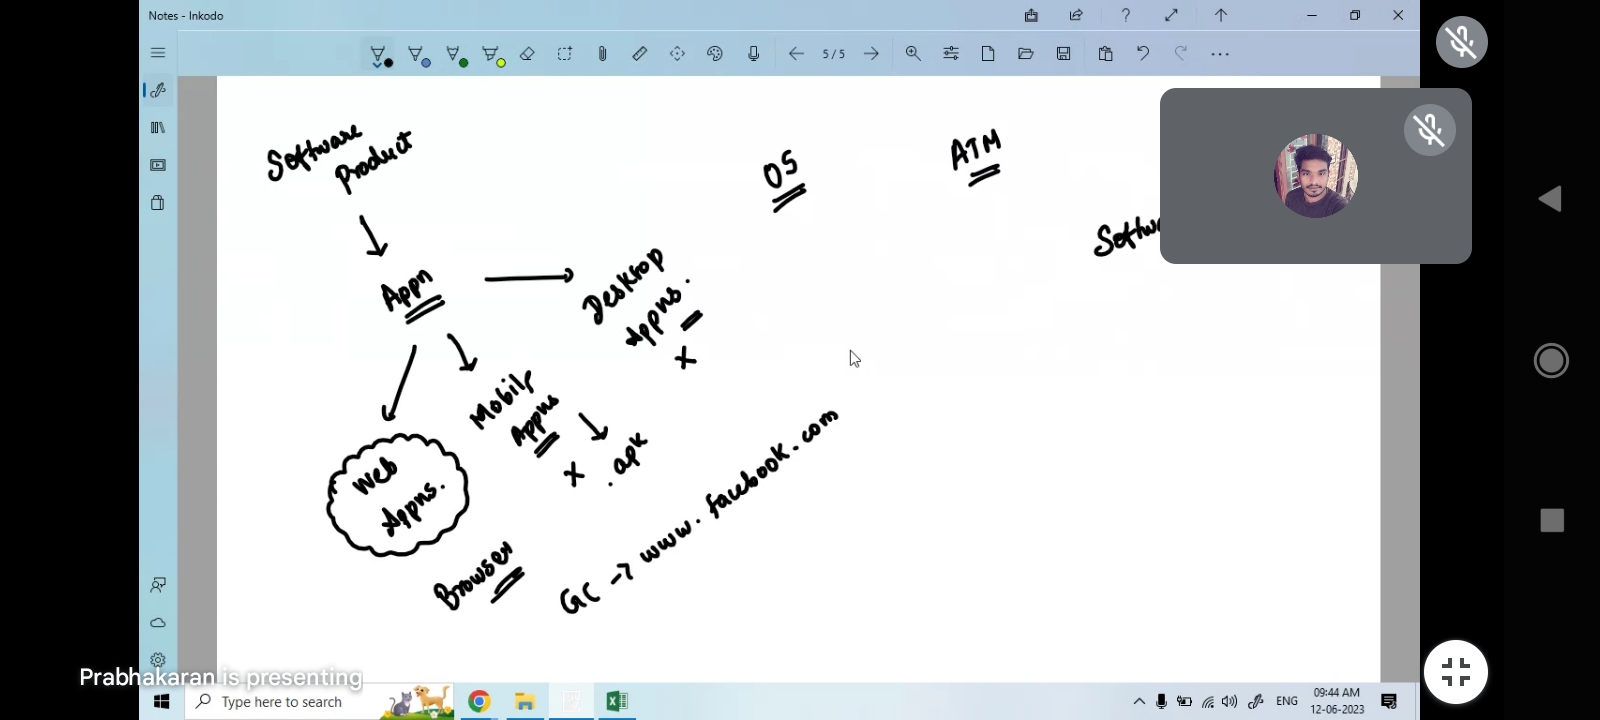 Notes - Inkodo
5/5
Software
Product
OS
ATM
Softw
Appn
Desktop
Appns.
x
Mobile
Appns
x
.apk
Web
Appns.
Browser
GC → www.facebook.com
Prabhakaran is presenting
Type here to search
ENG
09:44 AM
12-06-2023